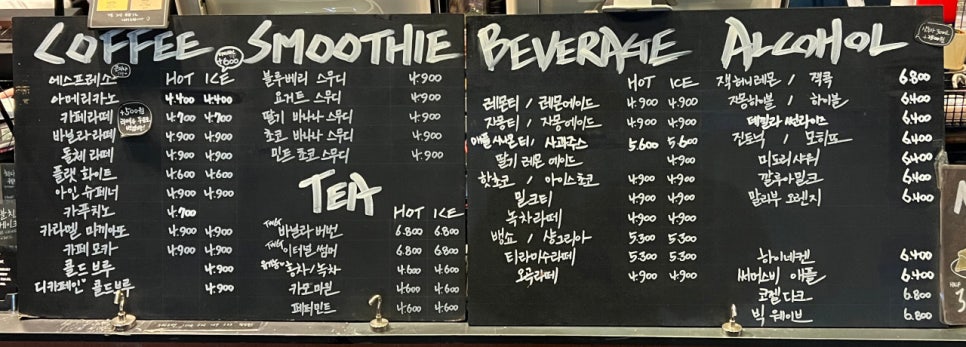 COFFEE
HOT ICE
에스프레소
아메리카노 4.400 4.400
카페라떼 4.700 4.700
바닐라라떼 4.900 4.900
돌체라떼 4.900 4.900
플랫 화이트 4.600 4.600
아인슈페너 4.900 4.900
카푸치노 4.700
카라멜 마끼아또 4.900 4.900
카페모카 4.900 4.900
콜드브루 4.900
디카페인 콜드브루 4.900
+500원
+600
SMOOTHIE
블루베리 스무디 4.900
요거트 스무디 4.900
딸기 바나나 스무디 4.900
초코 바나나 스무디 4.900
민트 초코 스무디 4.900
TEA
HOT ICE
바닐라 버번 6.800 6.800
이터널 썸머 6.800 6.800
홍차/녹차 4.600 4.600
카모마일 4.600 4.600
페퍼민트 4.600 4.600
BEVERAGE
HOT ICE
레몬티 / 레몬에이드 4.900 4.900
자몽티 / 자몽에이드 4.900 4.900
애플 시나몬티 / 사과주스 5.600 5.600
딸기 레몬 에이드 4.900
핫초코 / 아이스초코 4.900 4.900
밀크티 4.900 4.900
녹차라떼 4.900 4.900
뱅쇼 / 샹그리아 5.300 5.300
티라미수라떼 5.300 5.300
오곡라떼 4.900 4.900
ALCOHOL
잭허니레몬 / 잭콕 6.800
자몽하이볼 / 하이볼 6.400
데킬라 썬라이즈 6.400
진토닉 / 모히또 6.400
미도리사워 6.400
깔루아밀크 6.400
말리부 오렌지 6.400
하이네켄 6.400
써머스비 애플 6.400
코젤다크 6.800
빅 웨이브 6.800